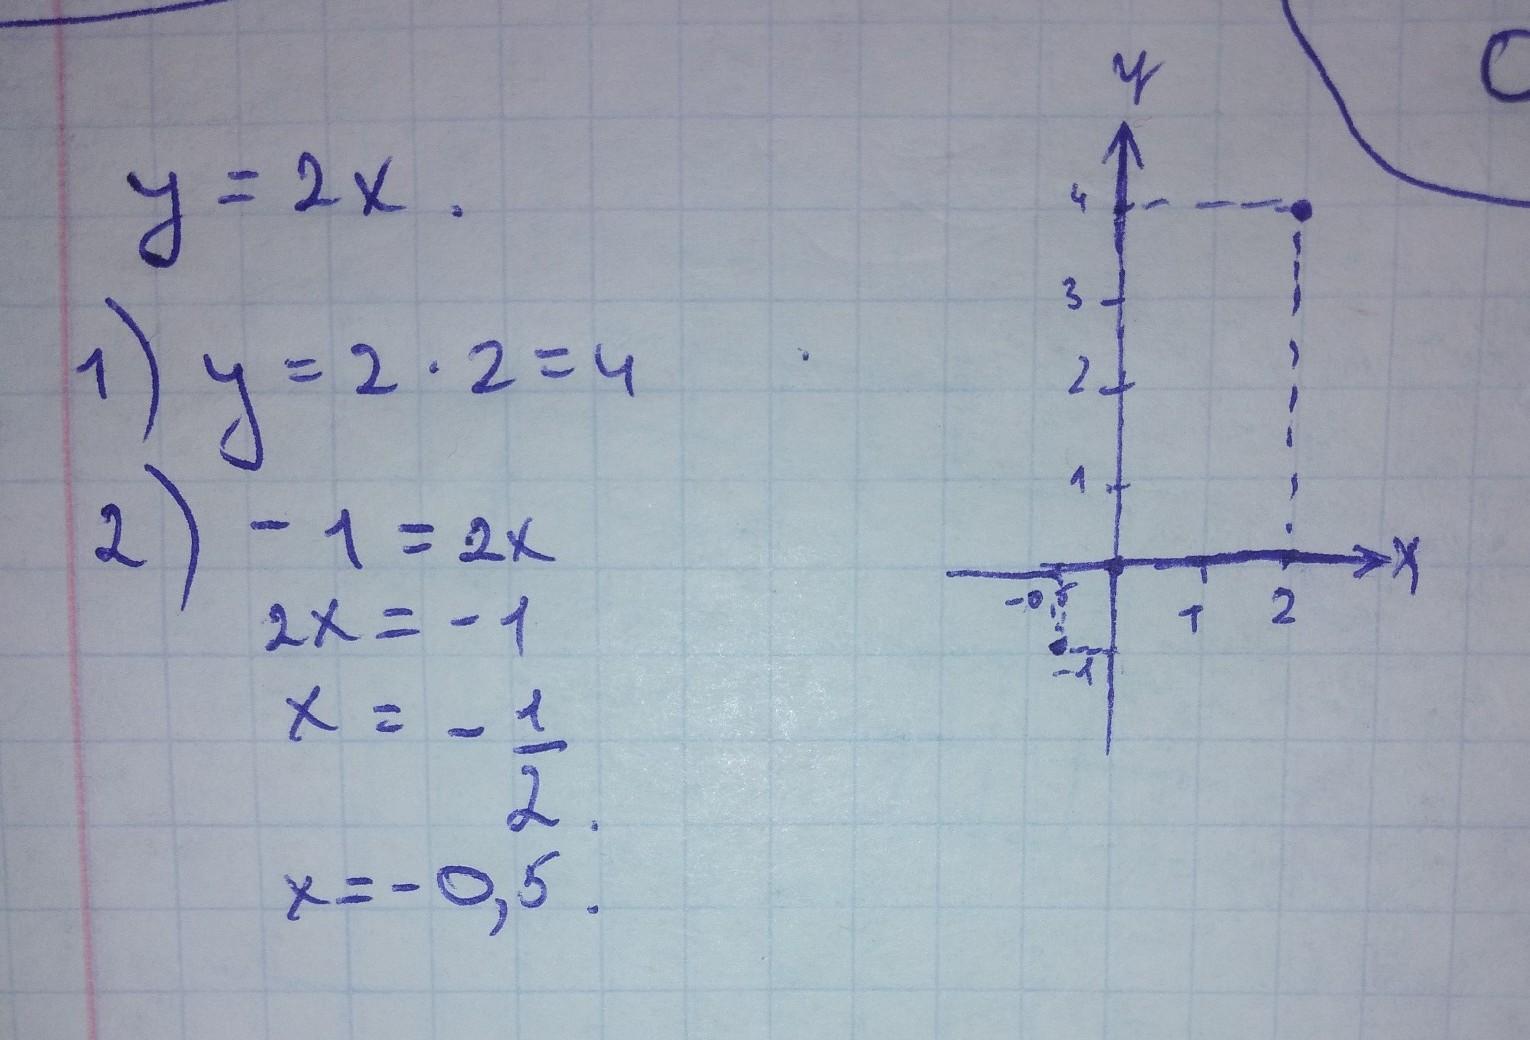 y = 2x.
1) y = 2 · 2 = 4
2) -1 = 2x
2x = -1
x = - 1/2.
x = -0,5.
y
4
3
2
1
x
-0,5
1
2
-1